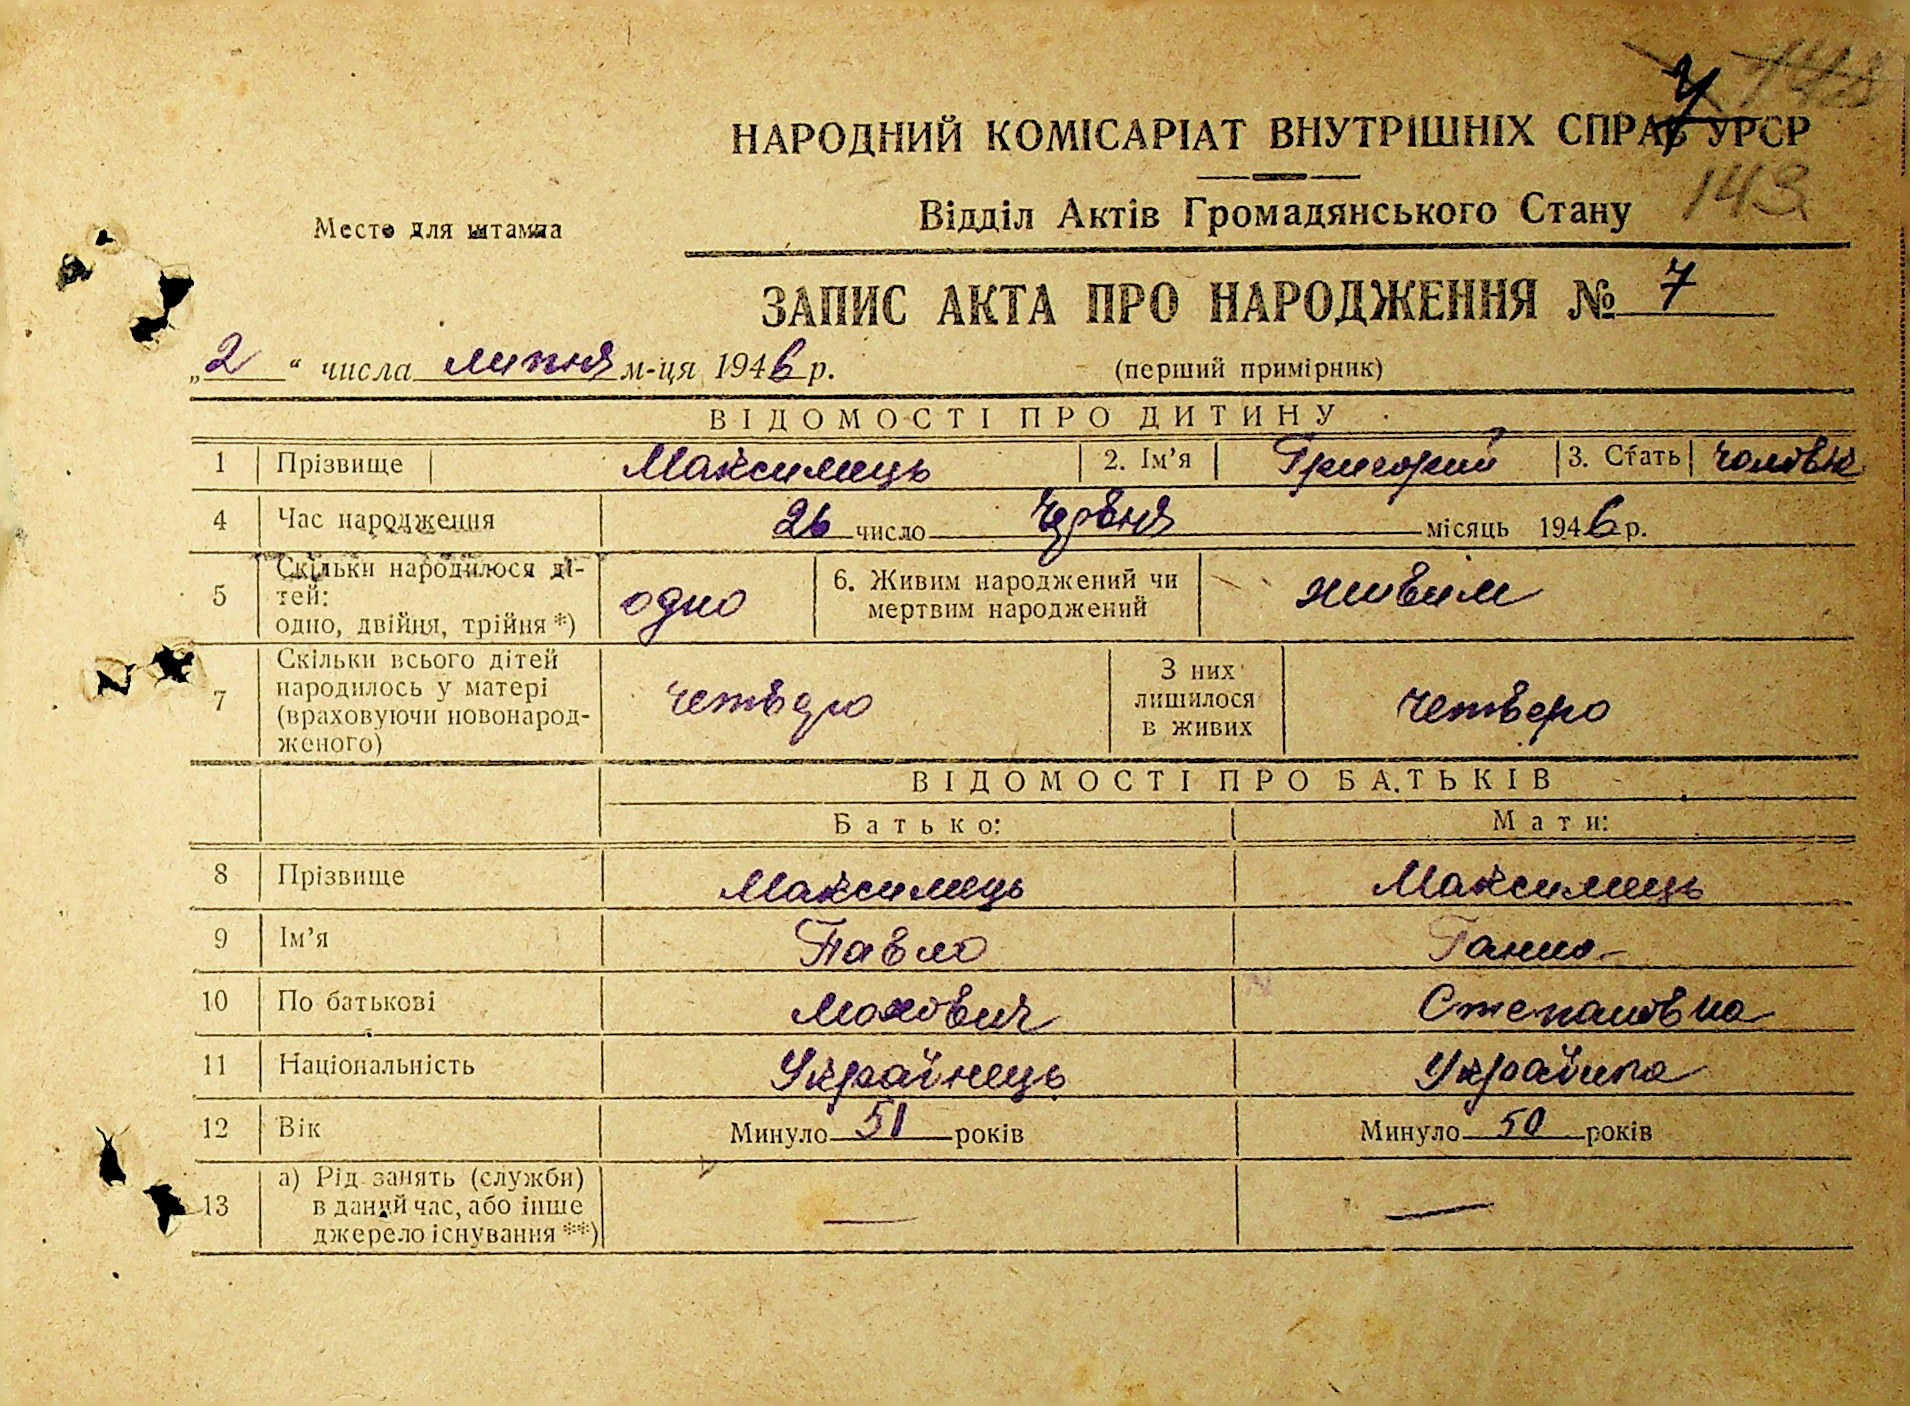 148
НАРОДНИЙ КОМІСАРІАТ ВНУТРІШНІХ СПРАВ УРСР
143
Место для штампа
Відділ Актів Громадянського Стану
ЗАПИС АКТА ПРО НАРОДЖЕННЯ № 7
„2“ числа липня м-ця 1946 р. (перший примірник)
ВІДОМОСТІ ПРО ДИТИНУ
1 Прізвище Максимець 2. Ім’я Григорий 3. Стать чоловік
4 Час народження 26 число Червня місяць 1946 р.
5 Скільки народилося ді-
тей:
одно, двійня, трійня *) одно 6. Живим народжений чи
мертвим народжений живим
7 Скільки всього дітей
народилось у матері
(враховуючи новонарод-
женого) четверо З них
лишилося
в живих четверо
ВІДОМОСТІ ПРО БАТЬКІВ
Батько: Мати:
8 Прізвище Максимець Максимець
9 Ім’я Павло Ганна
10 По батькові Степановна
11 Національність Українець Українка
12 Вік Минуло 51 років Минуло 50 років
13 а) Рід занять (служби)
в даний час, або інше
джерело існування **) — —